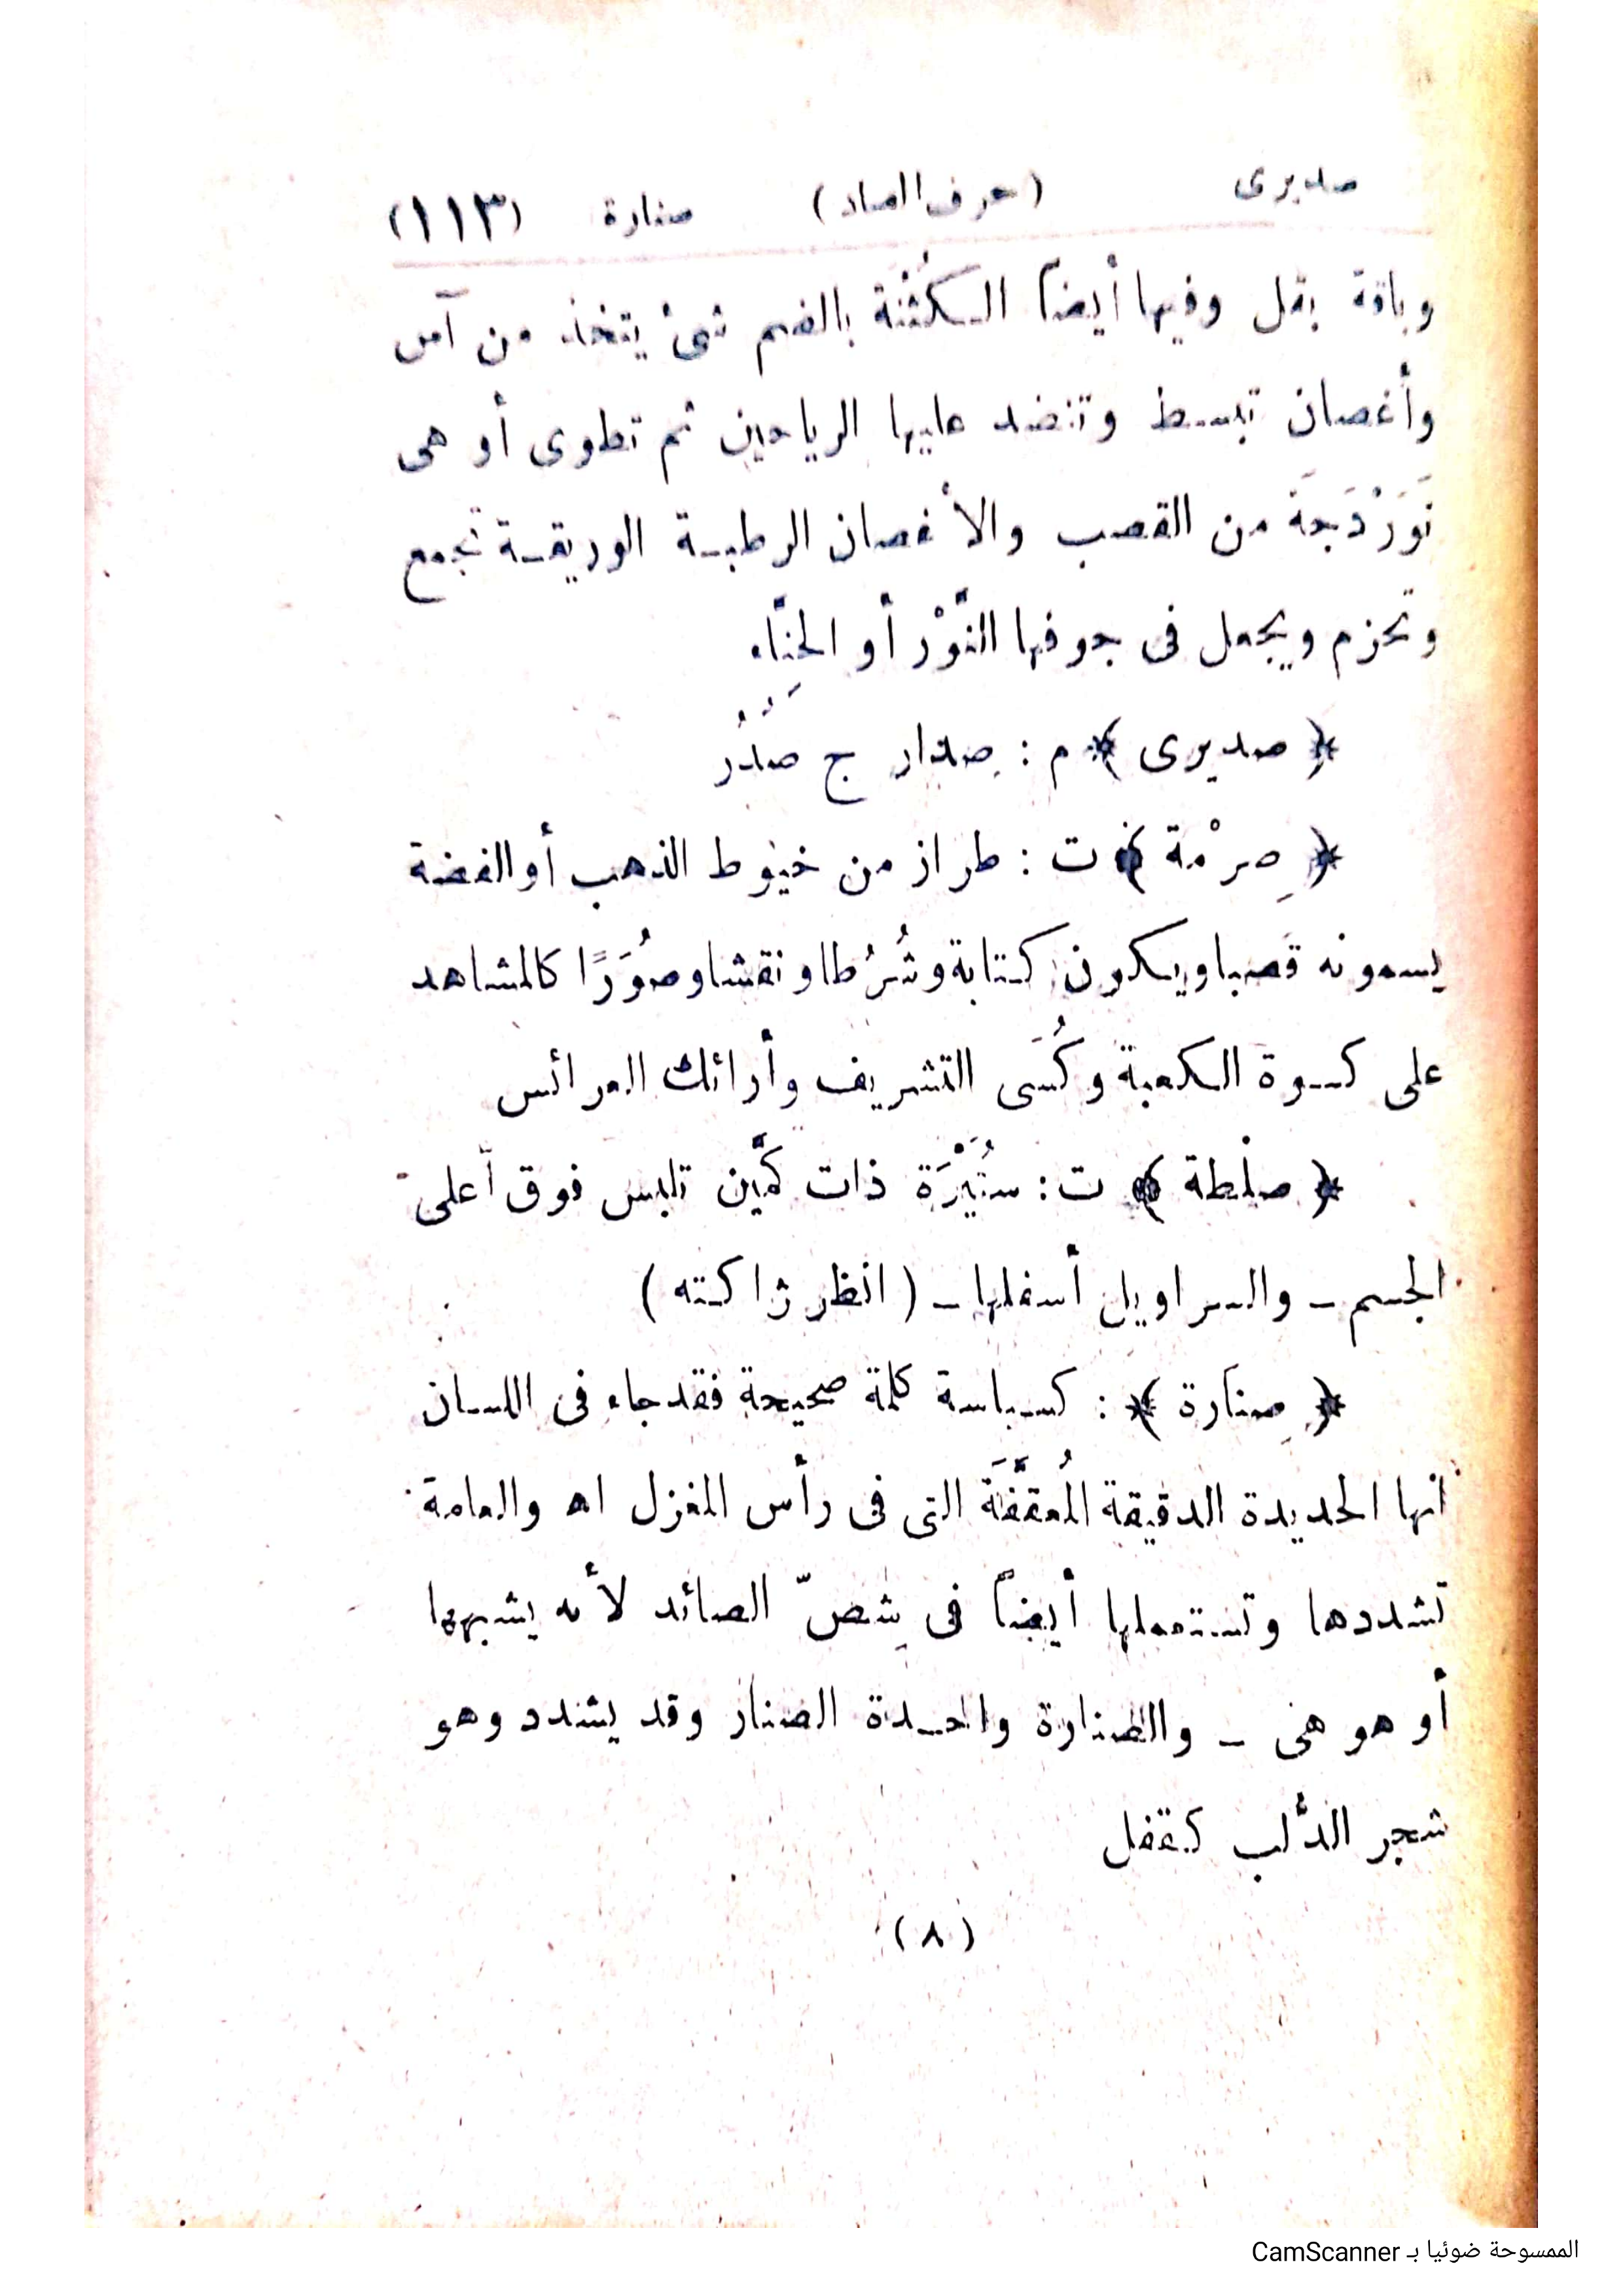 صديرى (حرف الصاد) صنارة (١١٣)
وباقة بقل وفيها أيضاً الكُثْنَة بالضم شئ يتخذ من آس
وأغصان تبسط وتنضد عليها الرياحين ثم تطوى أو هى
نَوَرْدَجَة من القصب والأغصان الرطبة الوريقة تجمع
وتحزم ويجعل فى جوفها النَّوْر أو الحِنَّاء
﴿ صديرى ﴾ م : صِدار ج صُدُر
﴿ صِرْمة ﴾ ت : طراز من خيوط الذهب أو الفضة
يسمونه قصبا ويكون كتابة وشُرُطا ونقشا وصُوَرًا كالمشاهد
على كسوة الكعبة وكُسَى التشريف وأرائك العرائس
﴿ صلْطة ﴾ ت : سُتَيْرَة ذات كمَّين تلبس فوق أعلى
الجسم ــ والسراويل أسفلها ــ ( انظر ژاكته )
﴿ صِنارة ﴾ : كسباسة كلمة صحيحة فقد جاء فى اللسان
أنها الحديدة الدقيقة المُعقَّفَة التى فى رأس المغزل اه والعامة
تشددها وتستعملها أيضاً فى شِصّ الصائد لأنه يشبهها
أو هو هى ــ والصنارة واحدة الصنار وقد يشدد وهو
شجر الدُّلب كقفل
(٨)
الممسوحة ضوئيا بـ CamScanner